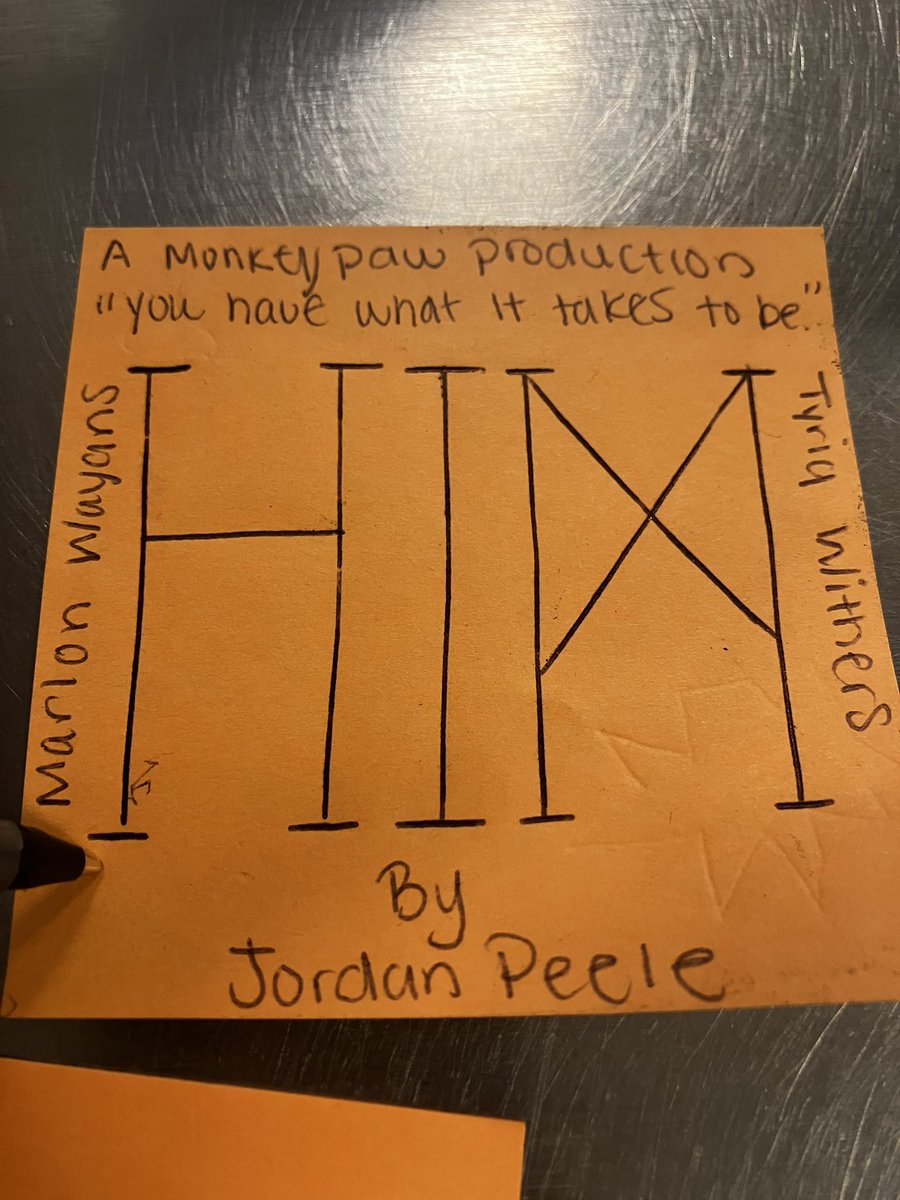 A Monkeypaw production
"you have what it takes to be."
Marlon Wayans
HIM
Tyriq Withers
By
Jordan Peele